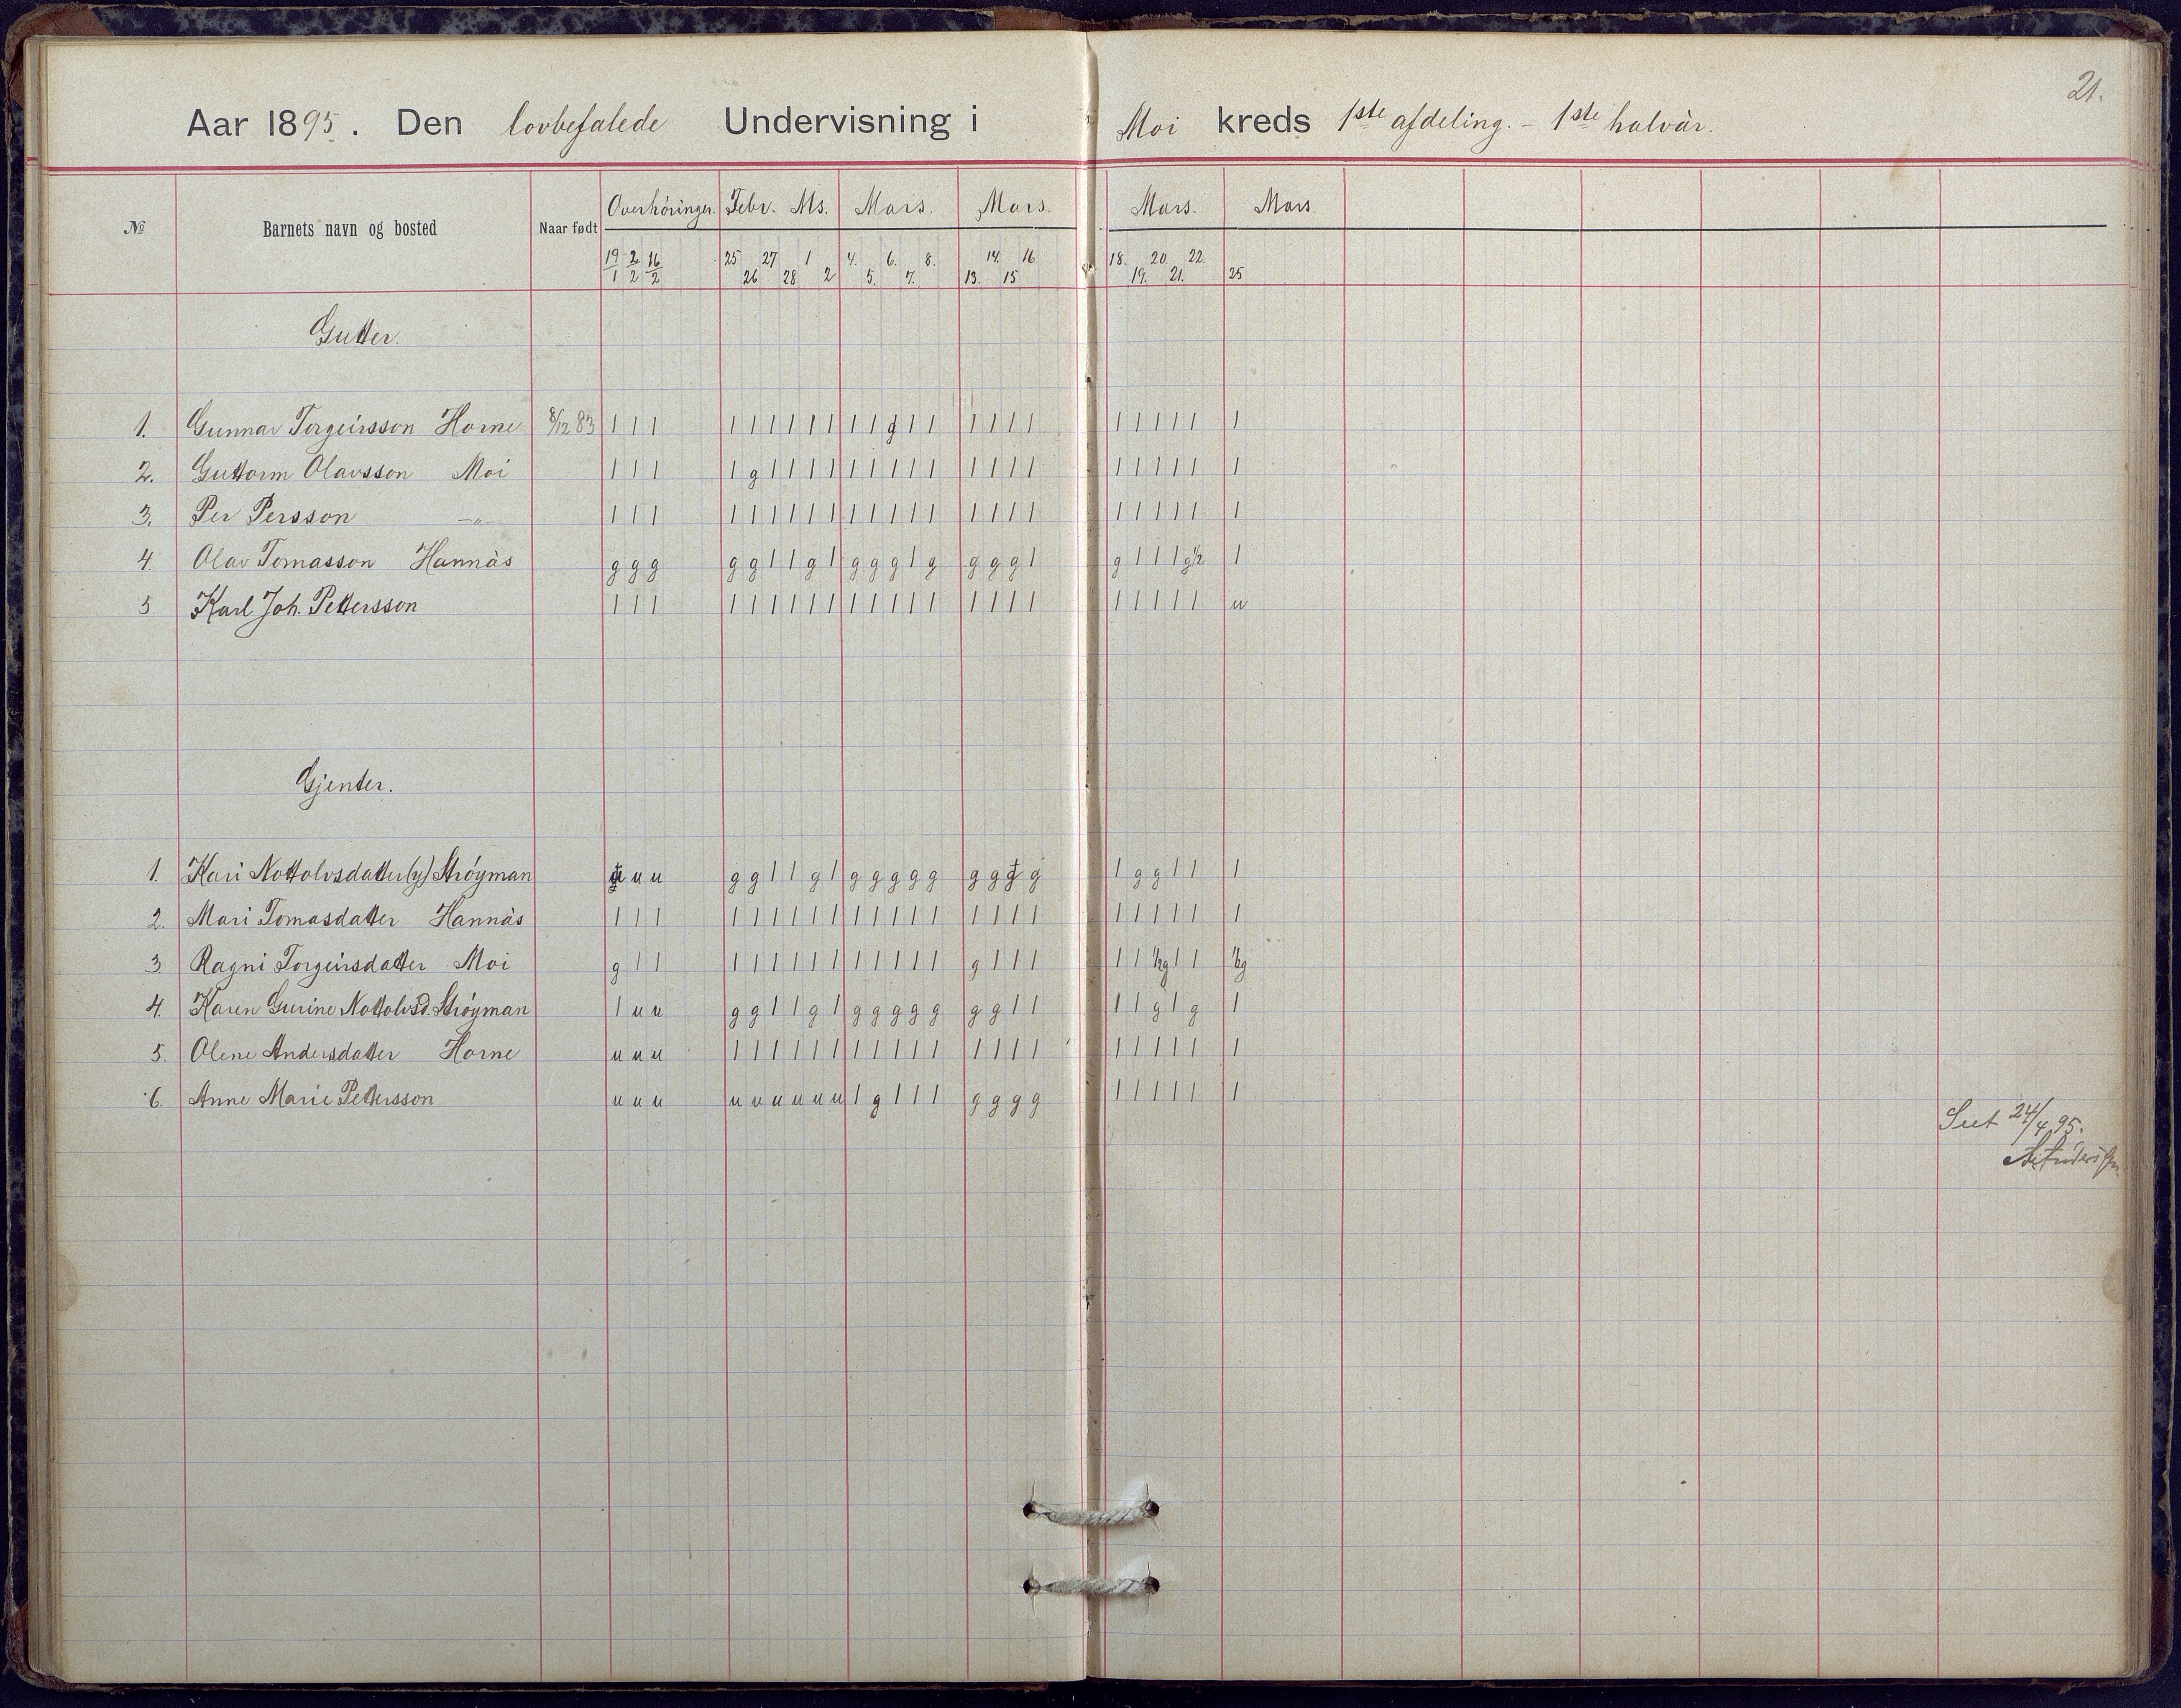 21.
Aar 1895. Den lovbefalede Undervisning i Moi kreds 1ste afdeling. - 1ste halvår.
№ Barnets navn og bosted Naar født Overhöringer. Febr. Ms. Mars. Mars. Mars. Mars
19/1 2/2 16/2 25 26 27 28 1 2 4. 5. 6. 7. 8. 13. 14. 15 16 18. 19. 20. 21. 22. 25
Gutter.
1. Gunnar Torgeirsson Horne 8/12 83 1 1 1 1 1 1 1 1 1 1 1 g 1 1 1 1 1 1 1 1 1 1 1 1
2. Guttorm Olavsson Moi 1 1 1 1 g 1 1 1 1 1 1 1 1 1 1 1 1 1 1 1 1 1 1 1
3. Per Persson -„- 1 1 1 1 1 1 1 1 1 1 1 1 1 1 1 1 1 1 1 1 1 1 1 1
4. Olav Tomasson Hannås g g g g g 1 1 g 1 g g g 1 g g g g 1 g 1 1 1 g½ 1
5. Karl Joh. Pettersson 1 1 1 1 1 1 1 1 1 1 1 1 1 1 1 1 1 1 1 1 1 1 1 u
Gjenter.
1. Kari Nottolvsdatter (y) Ströyman u u g g 1 1 g 1 g g g g g g g g g 1 g g 1 1 1
2. Mari Tomasdatter Hannås 1 1 1 1 1 1 1 1 1 1 1 1 1 1 1 1 1 1 1 1 1 1 1 1
3 Ragni Torgeirsdatter Moi g 1 1 1 1 1 1 1 1 1 1 1 1 1 g 1 1 1 1 1 ½g 1 1 ½g
4. Karen Gurine Nottolvsd. Ströyman 1 u u g g 1 1 g 1 g g g g g g g 1 1 1 1 g 1 g 1
5. Olene Andersdatter Horne u u u 1 1 1 1 1 1 1 1 1 1 1 1 1 1 1 1 1 1 1 1 1
6. Anne Marie Pettersson u u u u u u u u u 1 g 1 1 1 g g g g 1 1 1 1 1 1
Set 24/4 95.